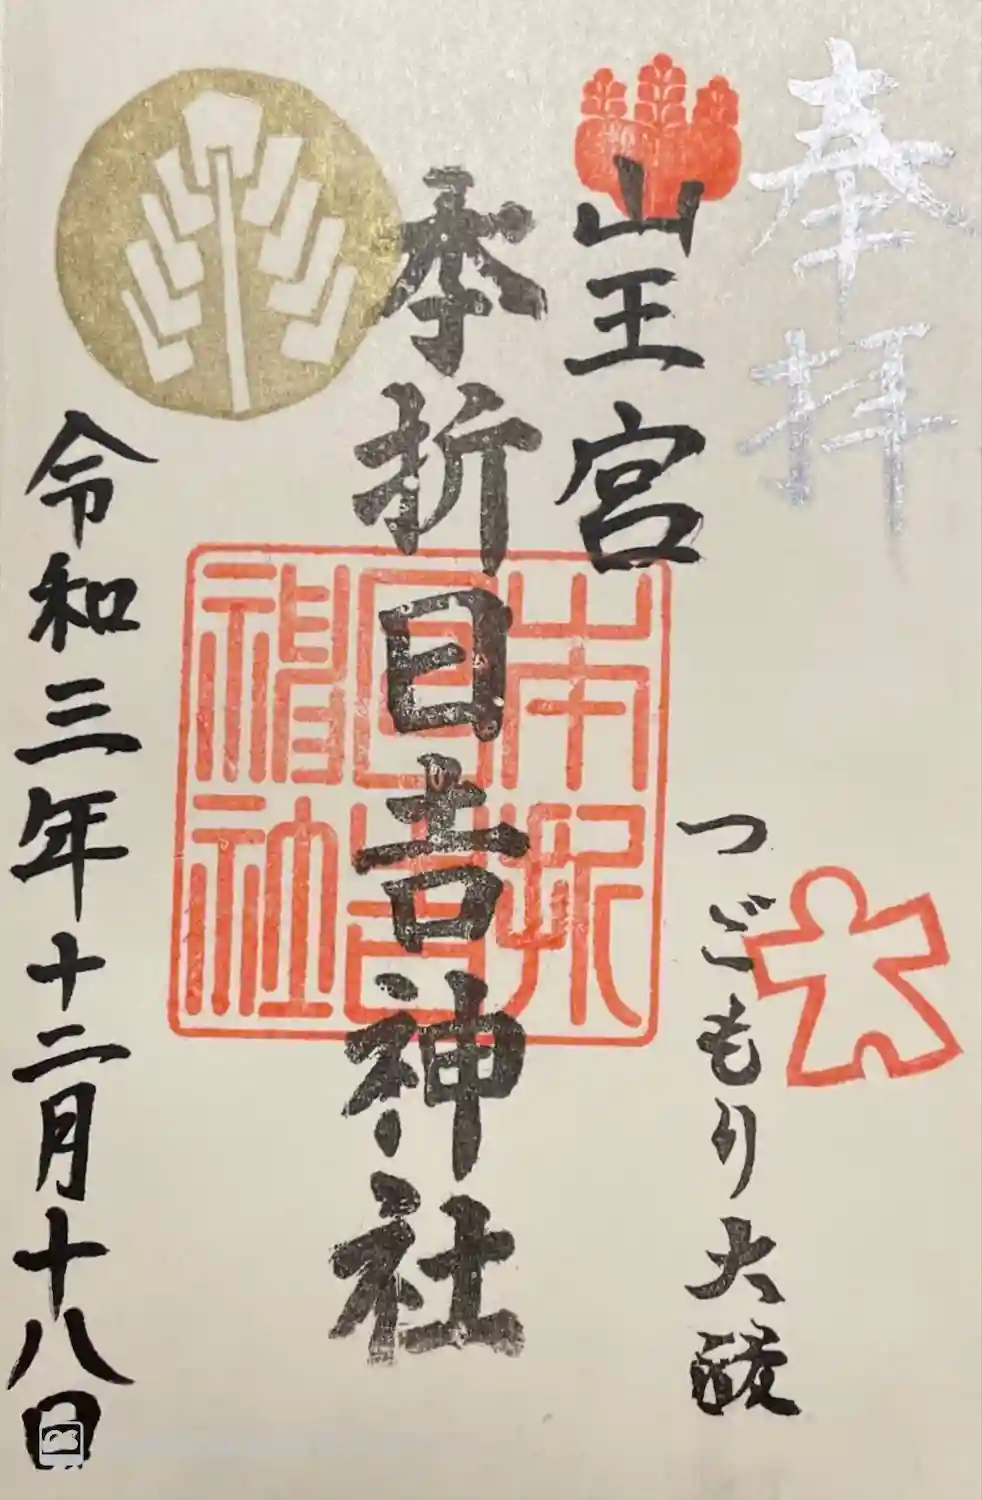 奉拝
山王宮
本折日吉神社
本折
日吉
神社
つごもり大祓
令和三年十二月十八日